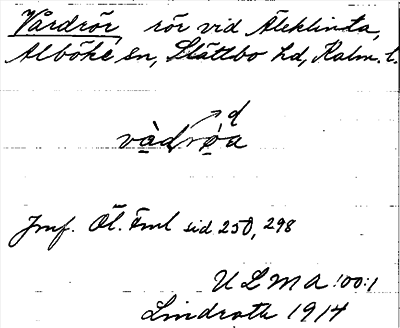 Vårdrör, rör vid Äleklinta,
Alböke sn, Slättbo hd, Kalm. l.
d
vàdrò̱a
Jmf. Öl. Fml sid. 250, 298
ULMA 100:1
Lindroth 1914